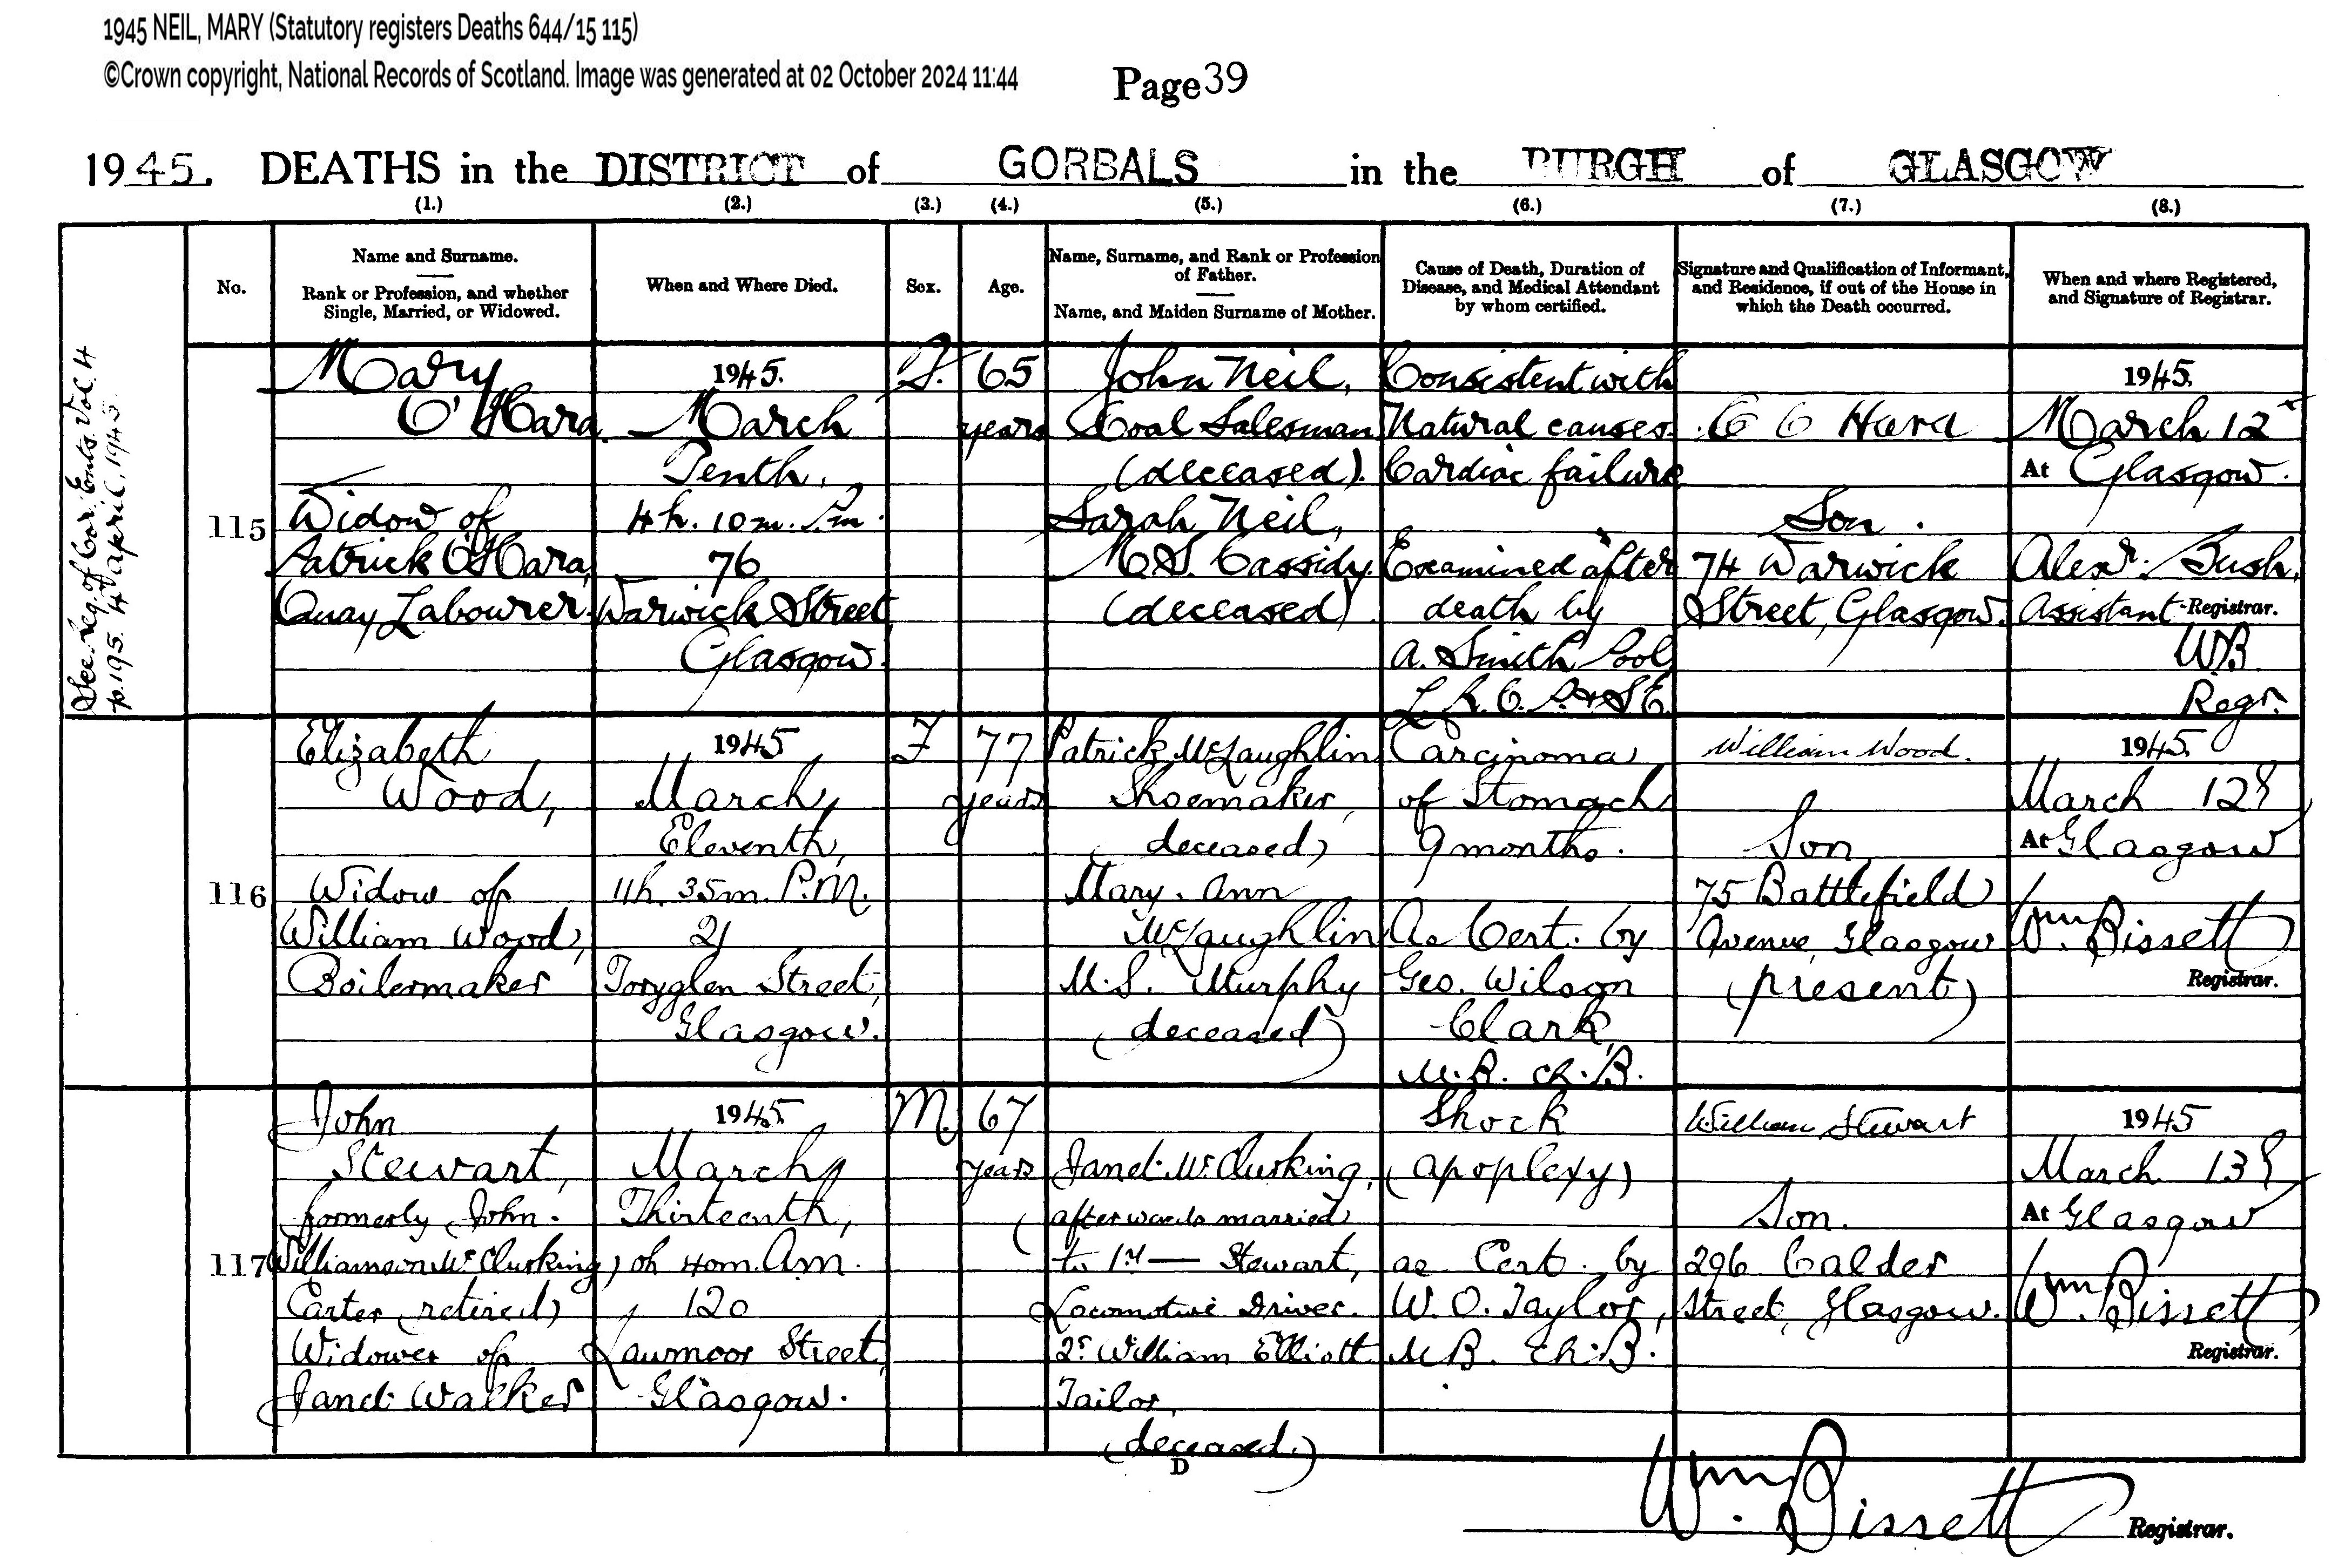 1945 NEIL, MARY (Statutory registers Deaths 644/15 115)
©Crown copyright, National Records of Scotland. Image was generated at 02 October 2024 11:44
Page 39
1945. DEATHS in the DISTRICT of GORBALS in the BURGH of GLASGOW
(1.) (2.) (3.) (4.) (5.) (6.) (7.) (8.)
No.
Name and Surname.
Rank or Profession, and whether
Single, Married, or Widowed.
When and Where Died.
Sex.
Age.
Name, Surname, and Rank or Profession
of Father.
Name, and Maiden Surname of Mother.
Cause of Death, Duration of
Disease, and Medical Attendant
by whom certified.
Signature and Qualification of Informant,
and Residence, if out of the House in
which the Death occurred.
When and where Registered,
and Signature of Registrar.
See Reg. of Cor. Ents. Vol. 4
p. 195. 4th April, 1945.
115
Mary
O'Hara
Widow of
Patrick O'Hara,
Quay Labourer.
1945.
March
Tenth,
4h. 10m. P.m.
76
Warwick Street,
Glasgow.
F.
65
years
John Neil,
Coal Salesman
(deceased).
Sarah Neil,
M.S. Cassidy.
(deceased)
Consistent with
Natural causes.
Cardiac failure
Examined after
death by
A. Smith Pool
L.R.C.P. & S.E.
C O Hara
Son.
74 Warwick
Street, Glasgow.
1945.
March 12th
At Glasgow.
Alexr. Bush,
Assistant Registrar.
WB.
Regr.
116
Elizabeth
Wood,
Widow of
William Wood,
Boilermaker
1945
March,
Eleventh,
11h. 35m. P.M.
21
Toryglen Street,
Glasgow.
F
77
years
Patrick McLaughlin
Shoemaker,
deceased)
Mary. Ann
McLaughlin
M.S. Murphy
(deceased)
Carcinoma
of Stomach
9 months.
As Cert. by
Geo. Wilson
Clark,
M.B. Ch.B.
William Wood.
Son,
75 Battlefield
Avenue, Glasgow
(present)
1945
March 12th
At Glasgow
Wm. Bissett
Registrar.
117
John
Stewart,
formerly John.
Williamson McClusking)
Carter (retired)
Widower of
Janet Walker
1945.
March,
Thirteenth,
0h 40m. A.m.
120
Lawmoor Street,
Glasgow.
M.
67
years
Janet McClusking,
(afterwards married
to 1st — Stewart,
Locomotive Driver.
2d William Elliott
Tailor,
(deceased.)
Shock
(apoplexy)
as Cert. by
W. O. Taylor,
M.B. Ch.B.
William Stewart
Son.
296 Calder
Street, Glasgow.
1945
March 13th
At Glasgow
Wm. Bissett
Registrar.
D
Wm. Bissett
Registrar.